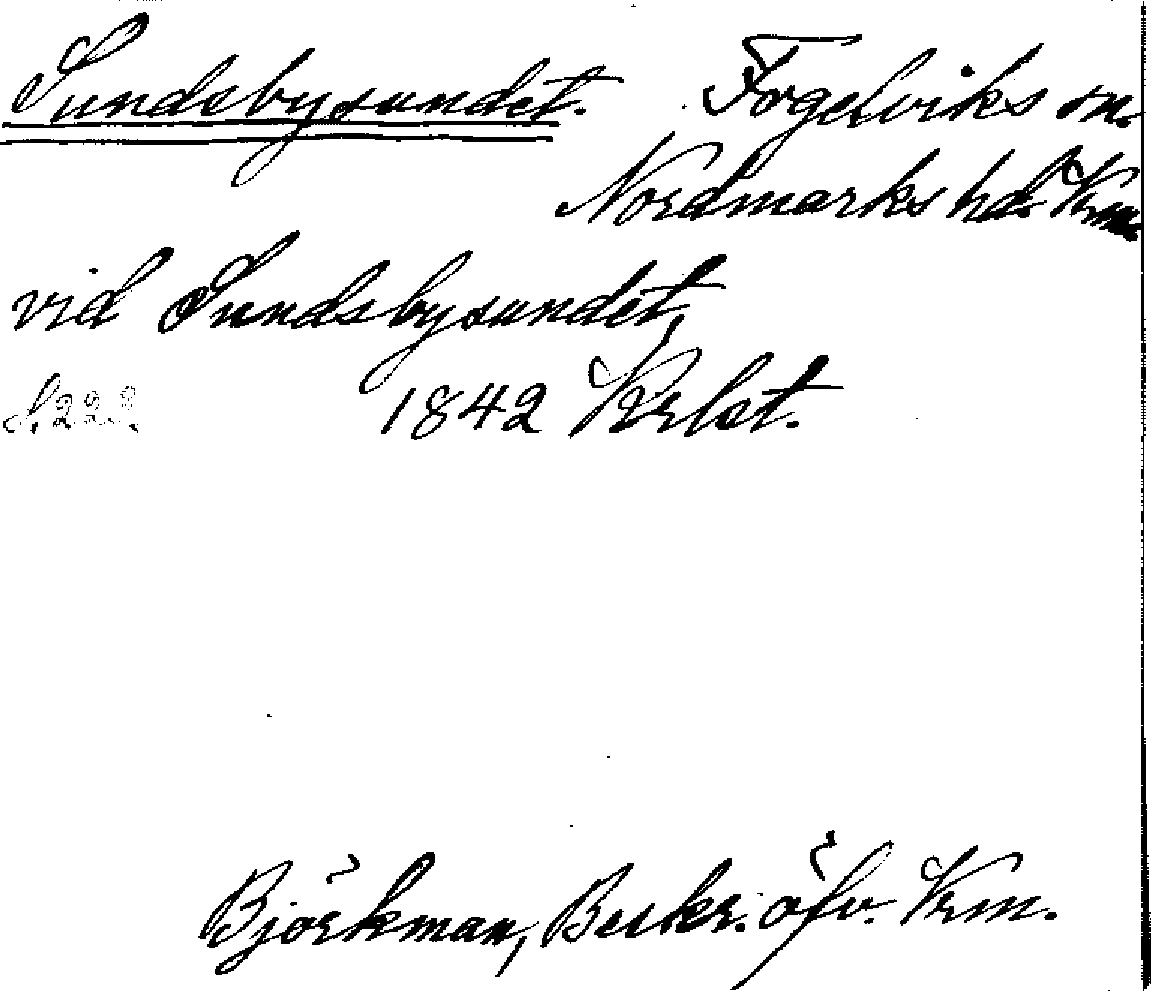 Sundsbysundet. Fogelviks sn.
Nordmarks hd. Vrm.
vid Sundsbysundet,
S. 222. 1842
Björkman, Beskr. öfv. Vrm.